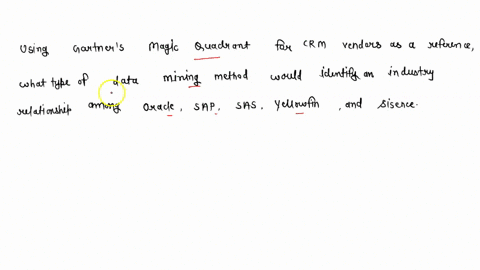 Using Gartner's Magic Quadrant for CRM vendors as a reference,
what type of data mining method would identify an industry
relationship among Oracle, SAP, SAS, Yellowfin, and Sisence.